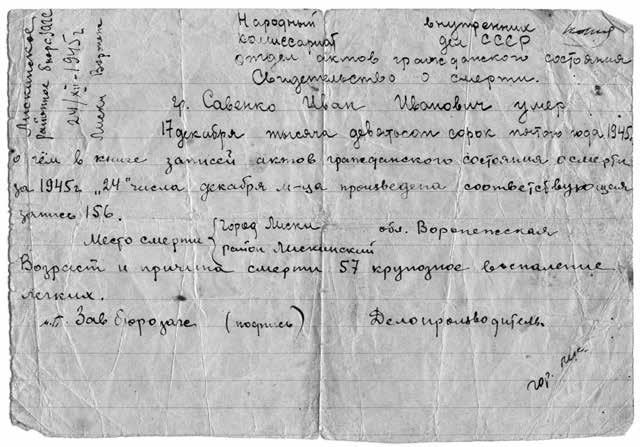 Лискинское
Районное бюро ЗАГС
24/XII-1945г
Лиски Ворон
копия
Народный внутренних
комиссариат дел СССР
отдел актов гражданского состояния
Свидетельство о смерти.
Гр. Савенко Иван Иванович умер
17 декабря тысяча девятьсот сорок пятого года 1945.
о чём в книге записей актов гражданского состояния о смерти
за 1945г „24" числа декабря м-ца произведена соответствующая
запись 156.
Место смерти { город Лиски обл. Воронежская
район Лискинский
Возраст и причина смерти 57 крупозное воспаление
легких.
м.п. Зав бюрозагс (подпись) Делопроизводитель